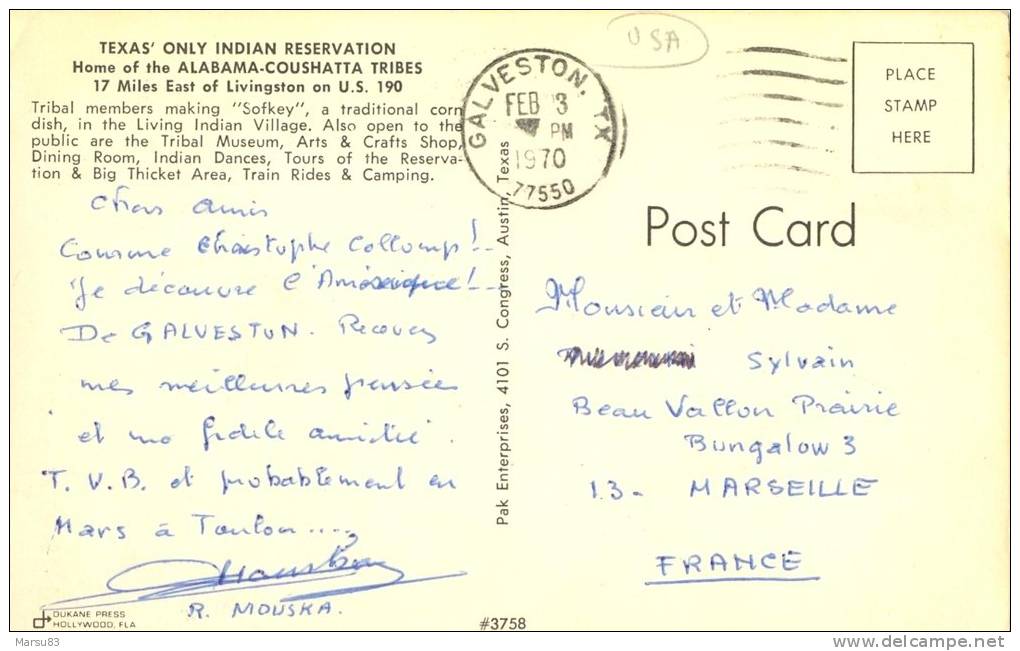 TEXAS' ONLY INDIAN RESERVATION
Home of the ALABAMA-COUSHATTA TRIBES
17 Miles East of Livingston on U.S. 190
Tribal members making "Sofkey", a traditional corn
dish, in the Living Indian Village. Also open to the
public are the Tribal Museum, Arts & Crafts Shop,
Dining Room, Indian Dances, Tours of the Reserva-
tion & Big Thicket Area, Train Rides & Camping.
Chers amis
Comme Christophe Collomp!..
Je découvre l'Amérique!..
De GALVESTON. Recevez
mes meilleures pensées
et ma fidèle amitié.
T. V. B. et probablement en
Mars à Toulon....
R. MOUSKA.
DUKANE PRESS
HOLLYWOOD, FLA
Marsu83
USA
GALVESTON, TX
FEB 3
PM
1970
77550
Pak Enterprises, 4101 S. Congress, Austin, Texas
#3758
PLACE
STAMP
HERE
Post Card
Monsieur et Madame
Sylvain
Beau Vallon Prairie
Bungalow 3
13- MARSEILLE
FRANCE
www.delcampe.net